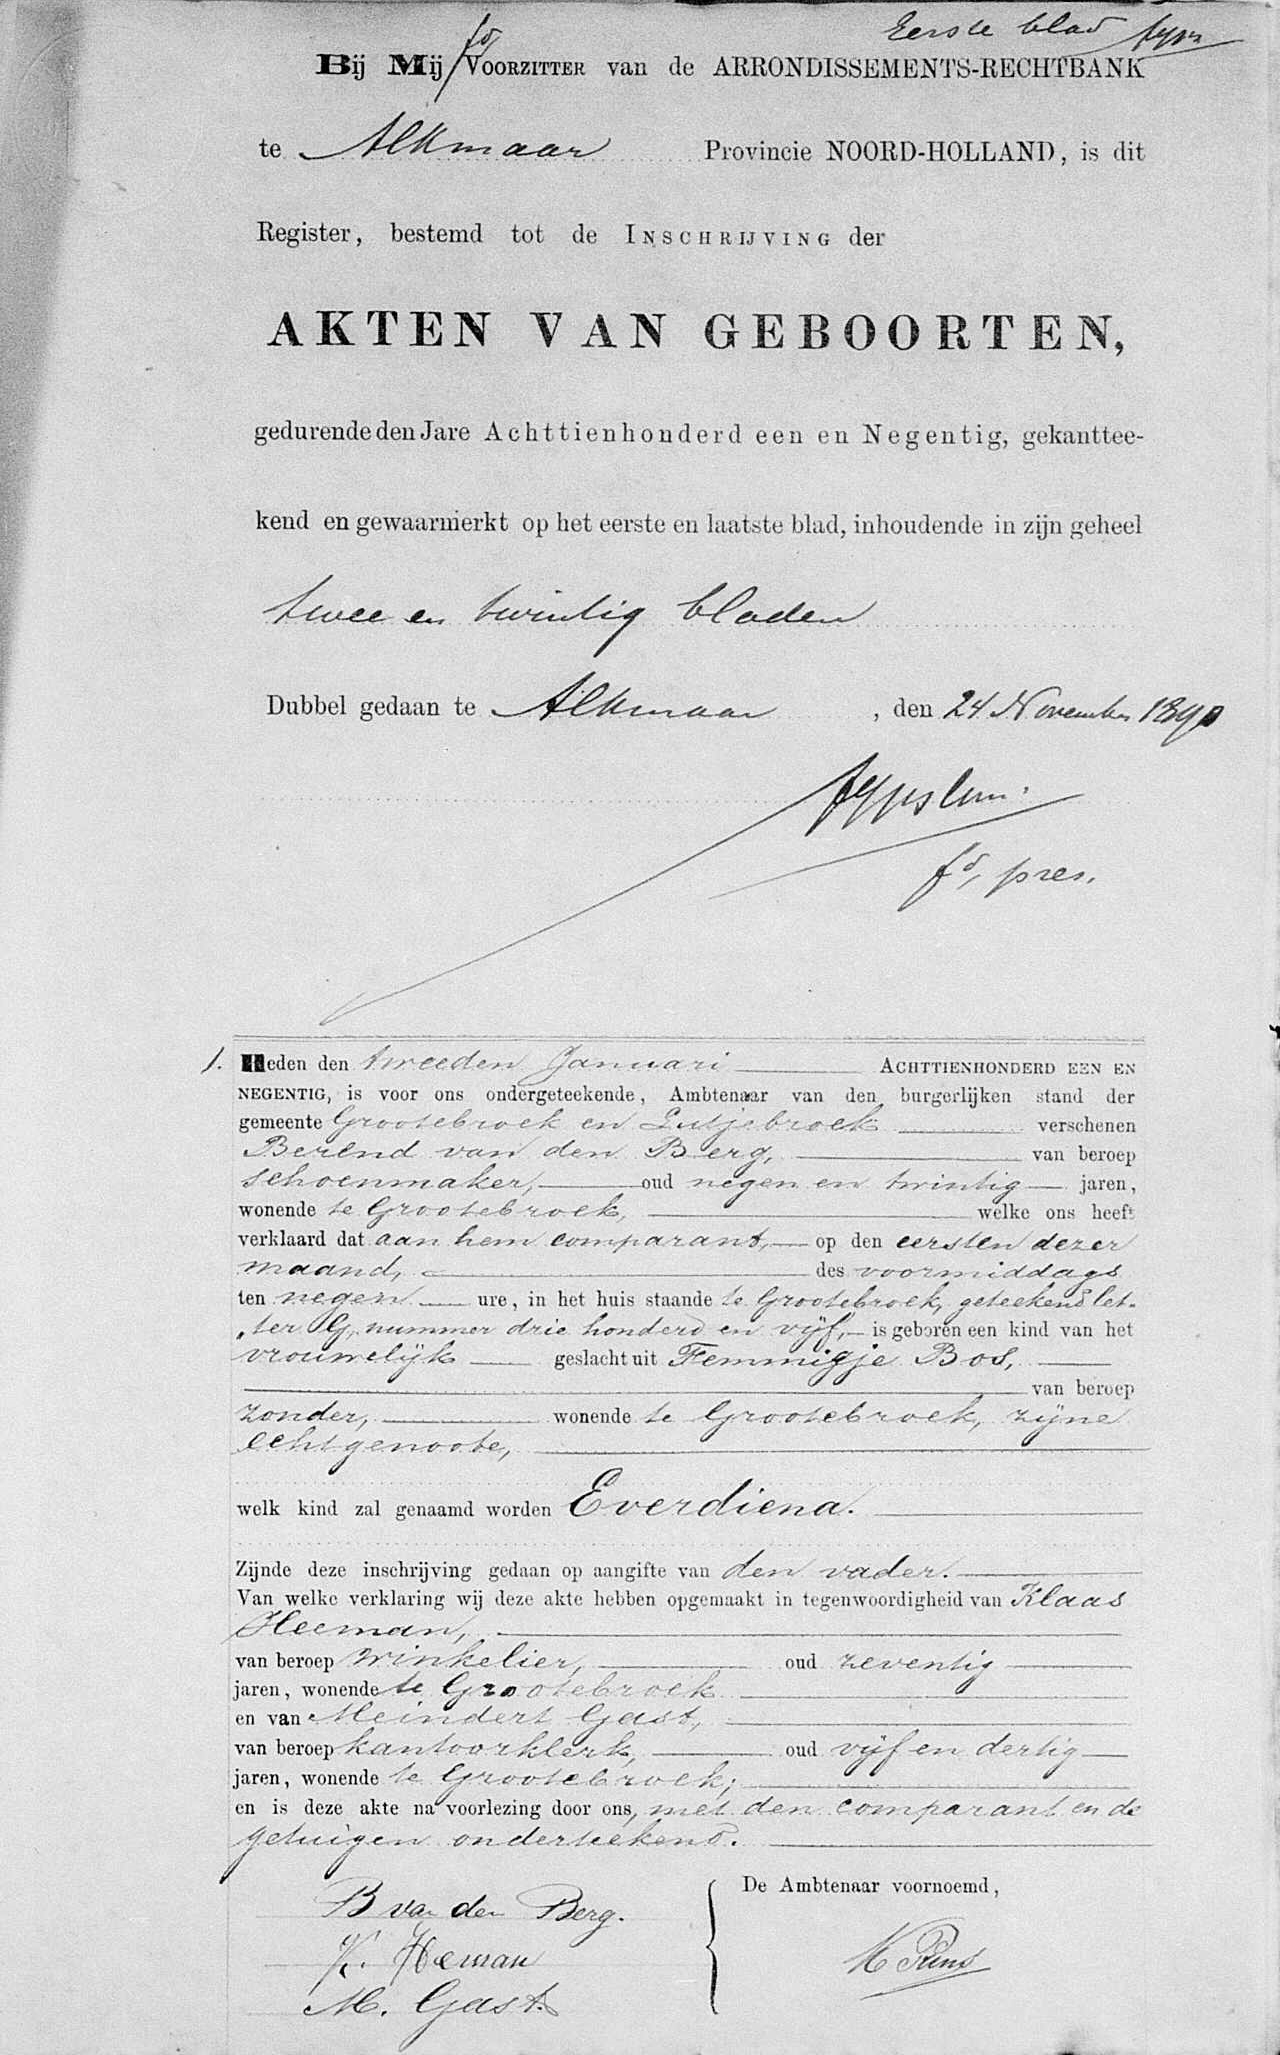 Eerste blad
fd
Bij Mij Voorzitter van de ARRONDISSEMENTS-RECHTBANK
te Alkmaar Provincie NOORD-HOLLAND, is dit
Register, bestemd tot de Inschrijving der
AKTEN VAN GEBOORTEN,
gedurende den Jare Achttienhonderd een en Negentig, gekanttee-
kend en gewaarmerkt op het eerste en laatste blad, inhoudende in zijn geheel
twee en twintig bladen
Dubbel gedaan te Alkmaar, den 24 November 1890
fd, pres.
1. Heden den tweeden Januari Achttienhonderd een en
negentig, is voor ons ondergeteekende, Ambtenaar van den burgerlijken stand der
gemeente Grootebroek en Lutjebroek verschenen
Berend van den Berg, van beroep
schoenmaker, oud negen en twintig jaren,
wonende te Grootebroek, welke ons heeft
verklaard dat aan hem comparant, op den eersten dezer
maand, des voormiddags
ten negen ure, in het huis staande te Grootebroek, geteekend let-
ter G, nummer drie honderd en vijf, is geboren een kind van het
vrouwelijk geslacht uit Femmigje Bos,
van beroep
zonder, wonende te Grootebroek, zijne
echtgenoote,
welk kind zal genaamd worden Everdiena.
Zijnde deze inschrijving gedaan op aangifte van den vader.
Van welke verklaring wij deze akte hebben opgemaakt in tegenwoordigheid van Klaas
Heeman,
van beroep winkelier, oud zeventig
jaren, wonende te Grootebroek
en van Meindert Gast,
van beroep kantoorklerk, oud vijf en dertig
jaren, wonende te Grootebroek;
en is deze akte na voorlezing door ons, met den comparant en de
getuigen onderteekend.
De Ambtenaar voornoemd,
B van den Berg.
K. Heman
M. Gast.